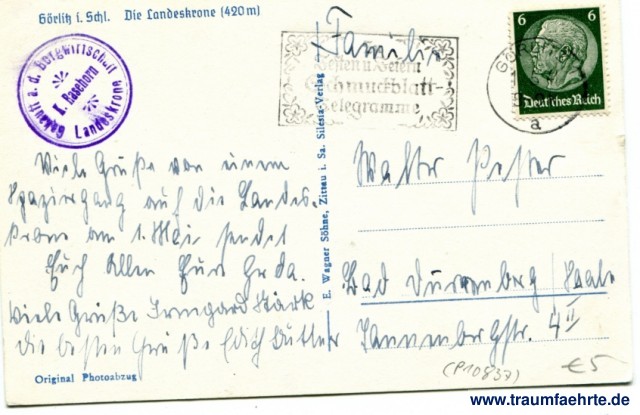 Görlitz i. Schl. Die Landeskrone (420 m)
Gekauft a. d. Bergwirtschaft Landeskrone
Rasehorn
Festen u. Feiern
Schmuckblatt-
Telegramme
6 6
Deutsches Reich
GÖRLITZ
a
E. Wagner Söhne, Zittau i. Sa. Silesia-Verlag
Viele Grüße von einem
Spaziergang auf die Landes-
krone am 1. Mai sendet
Euch Allen Eure Gerda.
Viele Grüße Irmgard
die besten Grüße Edith
Original Photoabzug
Familie
Walter
Bad Dürrenberg/Saale
Tannenbergstr. 4 II
(P10837)
€5
www.traumfaehrte.de